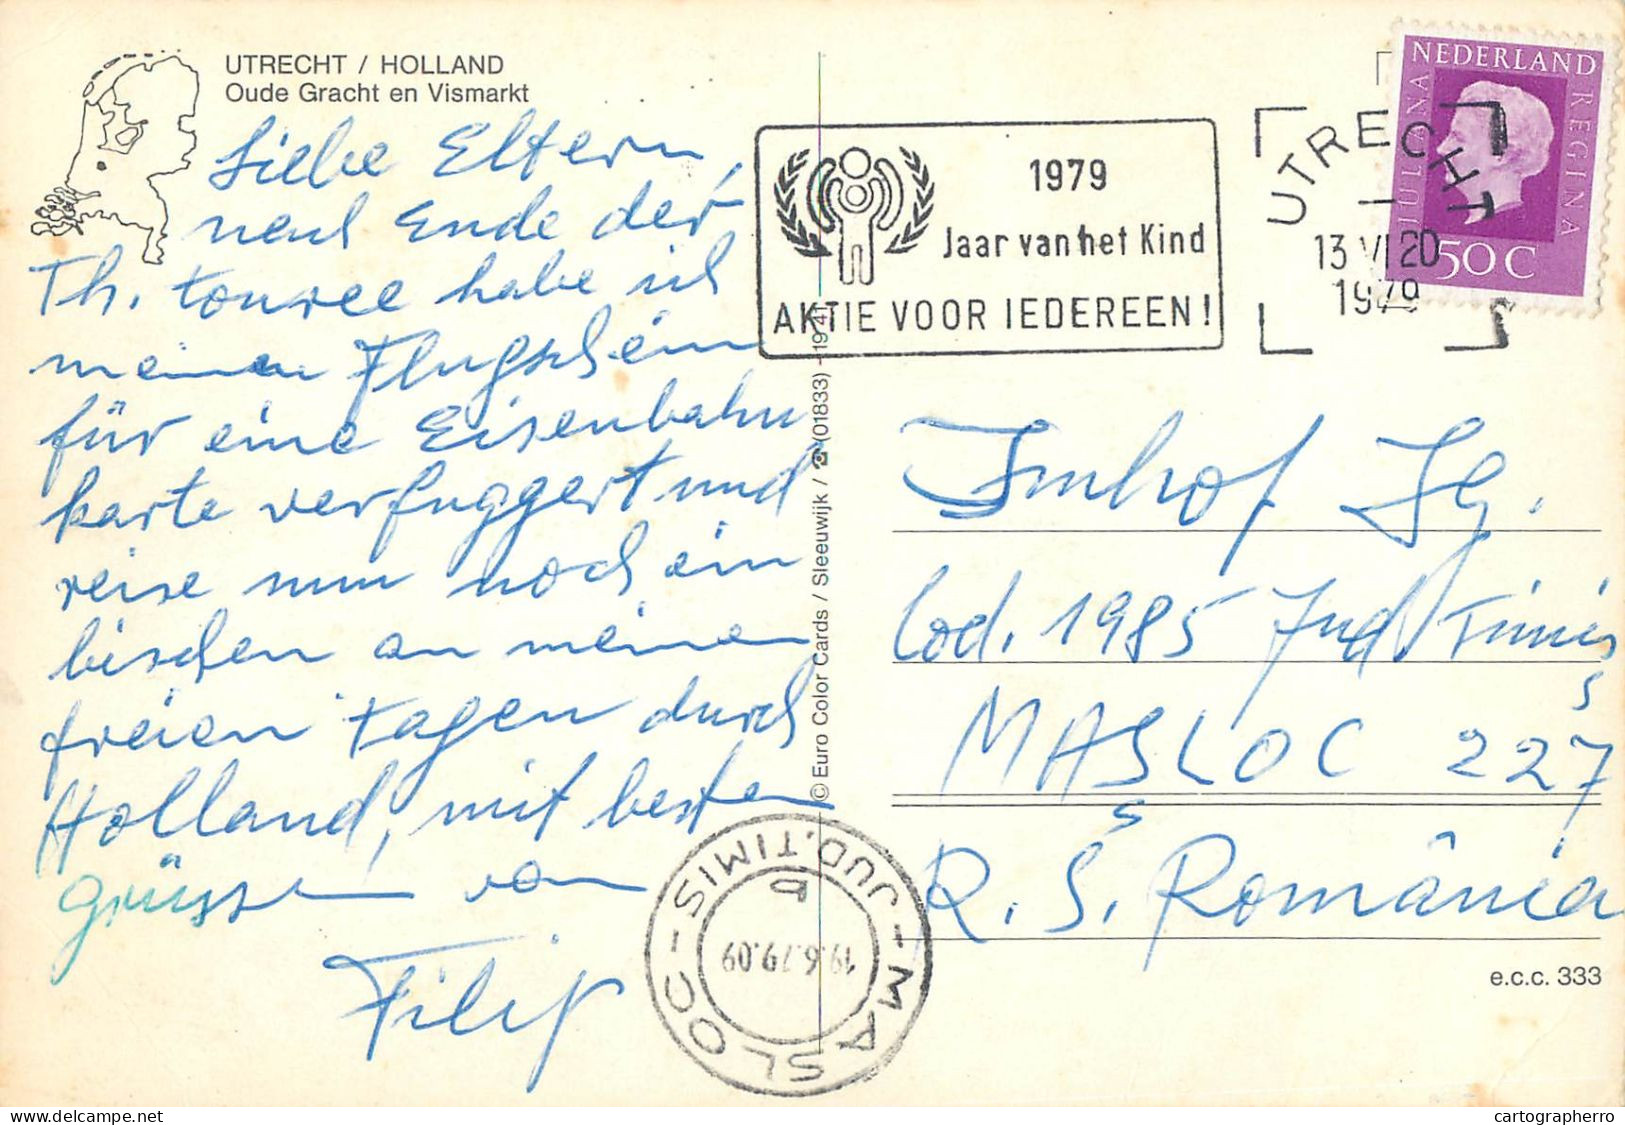 UTRECHT / HOLLAND
Oude Gracht en Vismarkt
Liebe Eltern,
nach Ende der
Th. tournee habe ich
meinen Flugschein
für eine Eisenbahn
karte verfuggert und
reise nun noch ein
bischen an meinen
freien Tagen durch
Holland, mit besten
grüssen von
Filip
© Euro Color Cards / Sleeuwijk / ☎ (01833) - 1941
1979
Jaar van het Kind
AKTIE VOOR IEDEREEN!
UTRECHT
13 VI 20
1979
NEDERLAND
JULIANA REGINA
50C
Imhof Jg.
Cod. 1985 Jud Timiș
MAȘLOC 227
R. S. România
MASLOC - JUD. TIMIS -
19.6.79.09
b
e.c.c. 333
delcampe.net
cartographerro